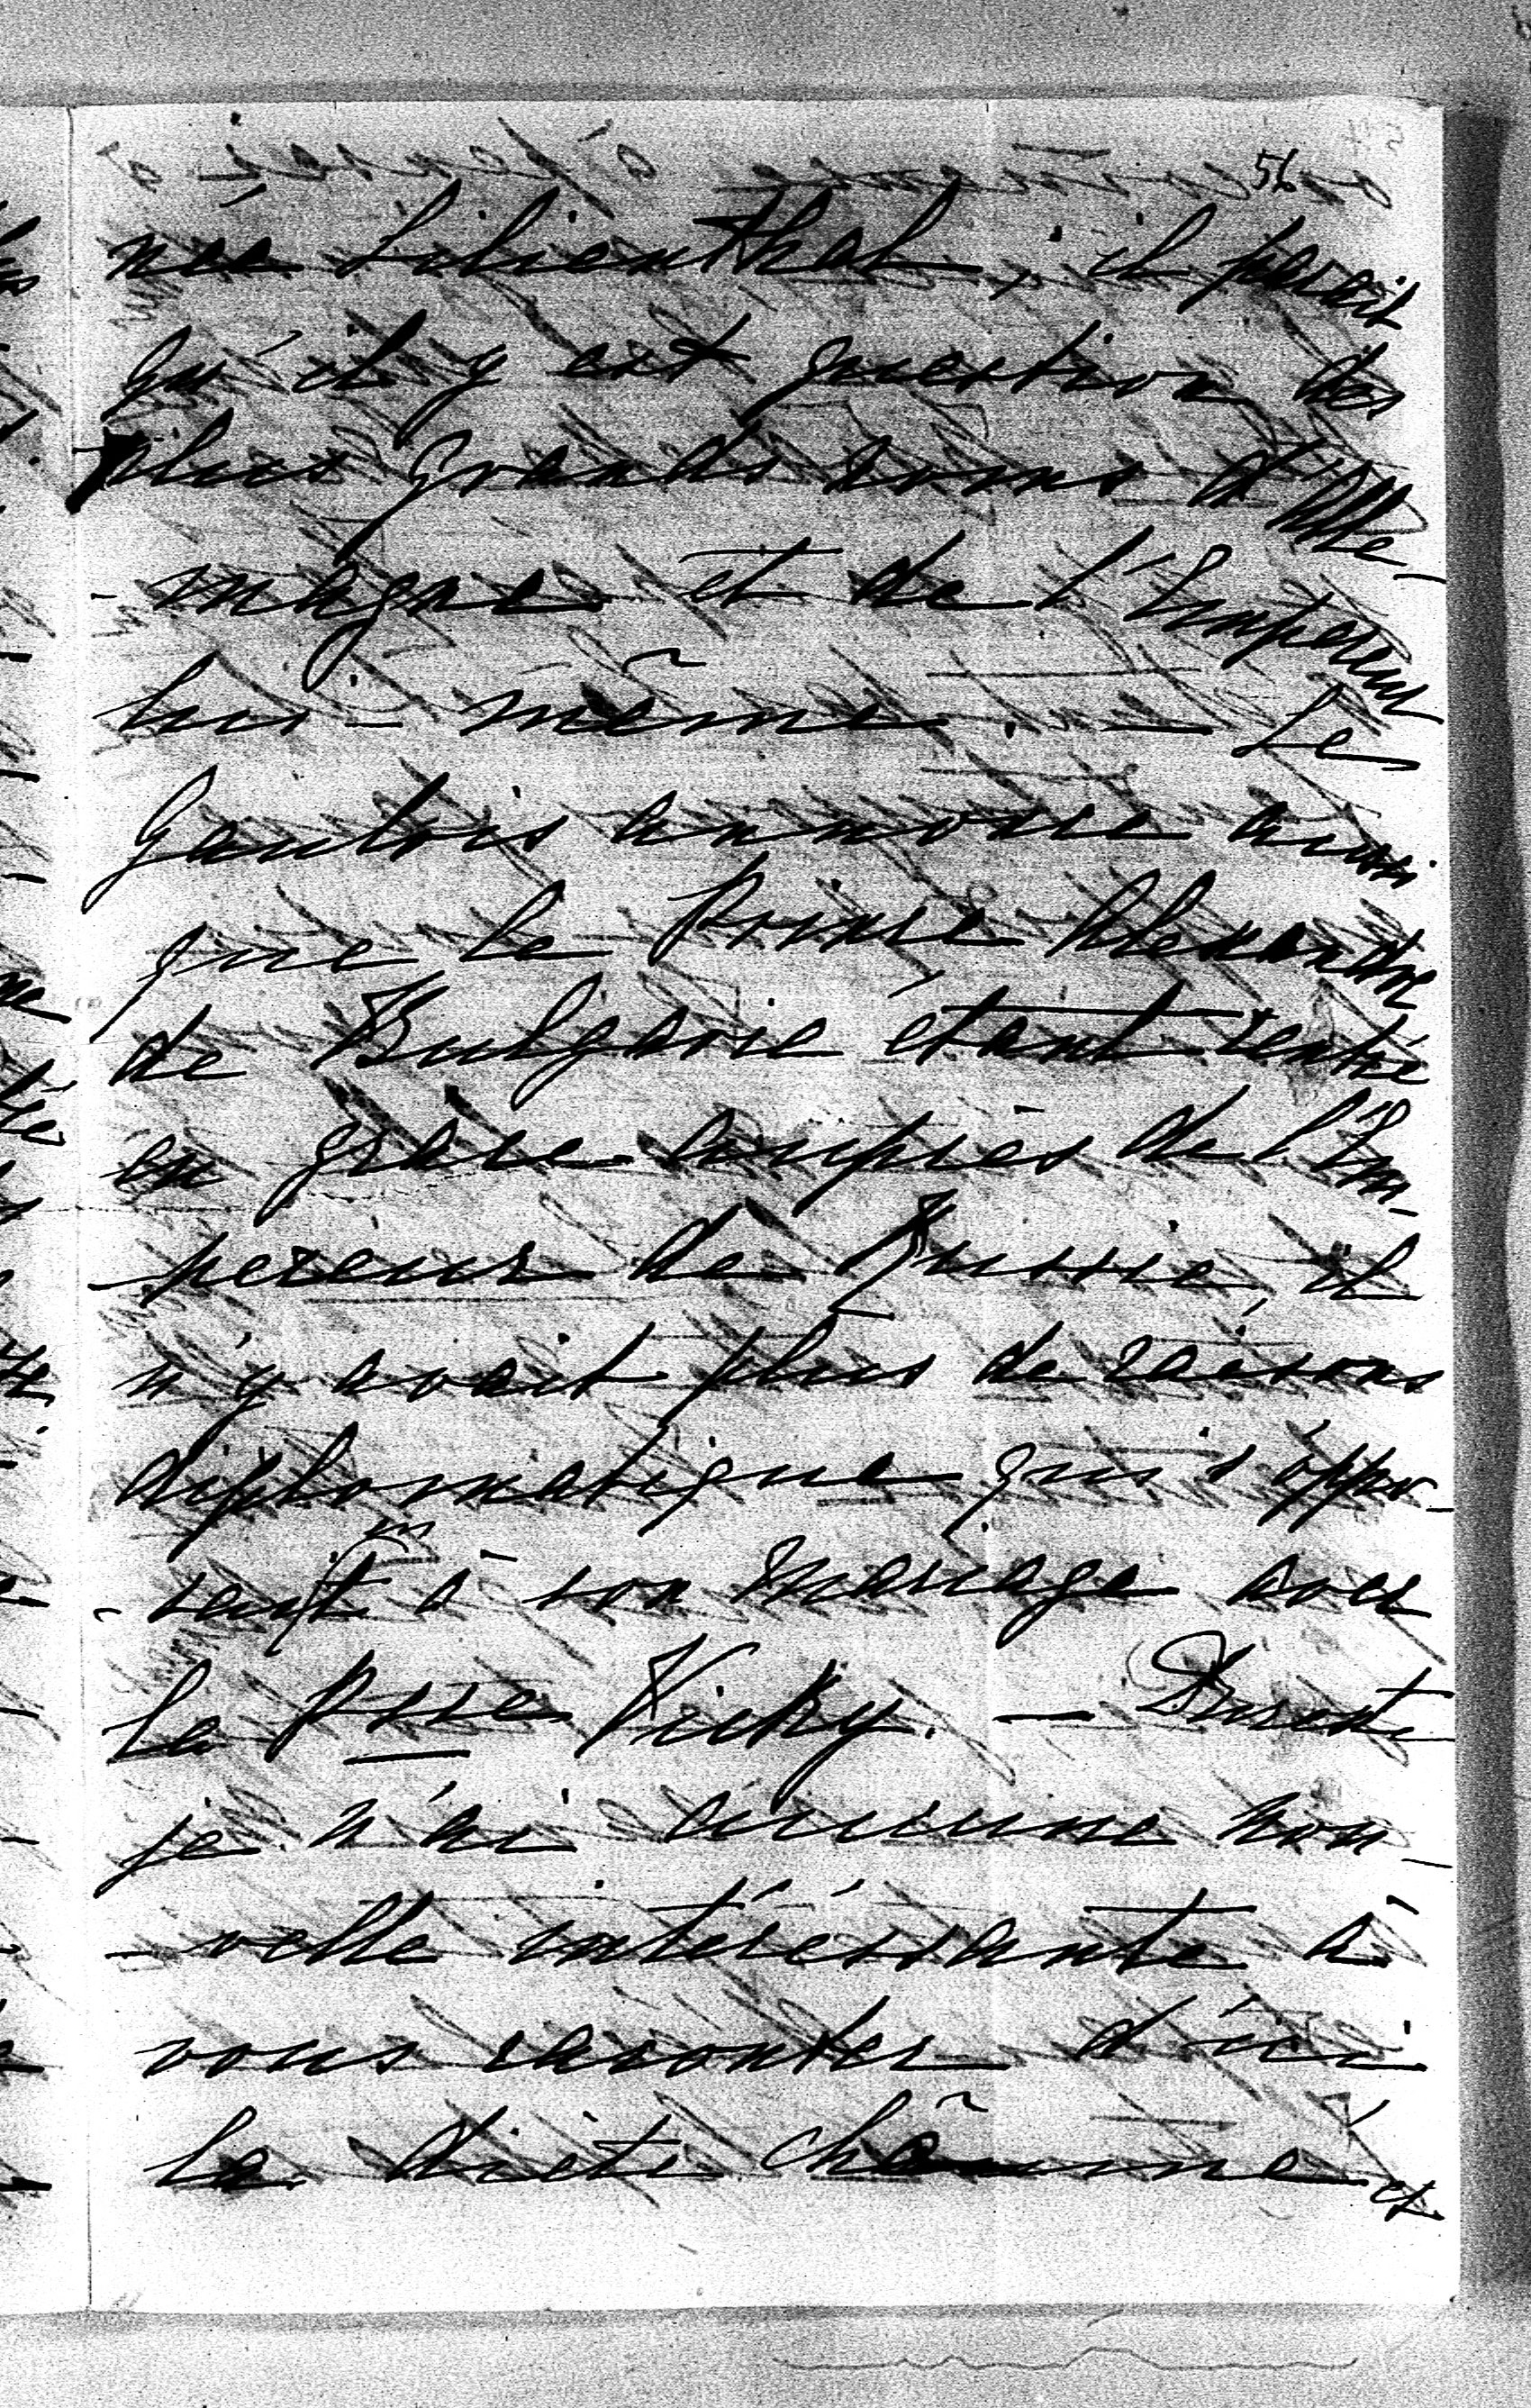 56
née Lilienthal, il parait
qu'il y est question des
plus grands noms d'Alle-
-magne et de l'Empereur
lui-même. — Le
Gaulois annonce aussi
que le Prince Alexandre
de Bulgarie étant rentré
en grâce auprès de l'Em-
pereur de Russie, il
n'y avait plus de raisons
diplomatique qui s'oppo-
-sait à son mariage avec
la Psse Vicky. —
je n'ai aucune nou-
-velle intéressante à
vous raconter d'ici
la diète chôme et